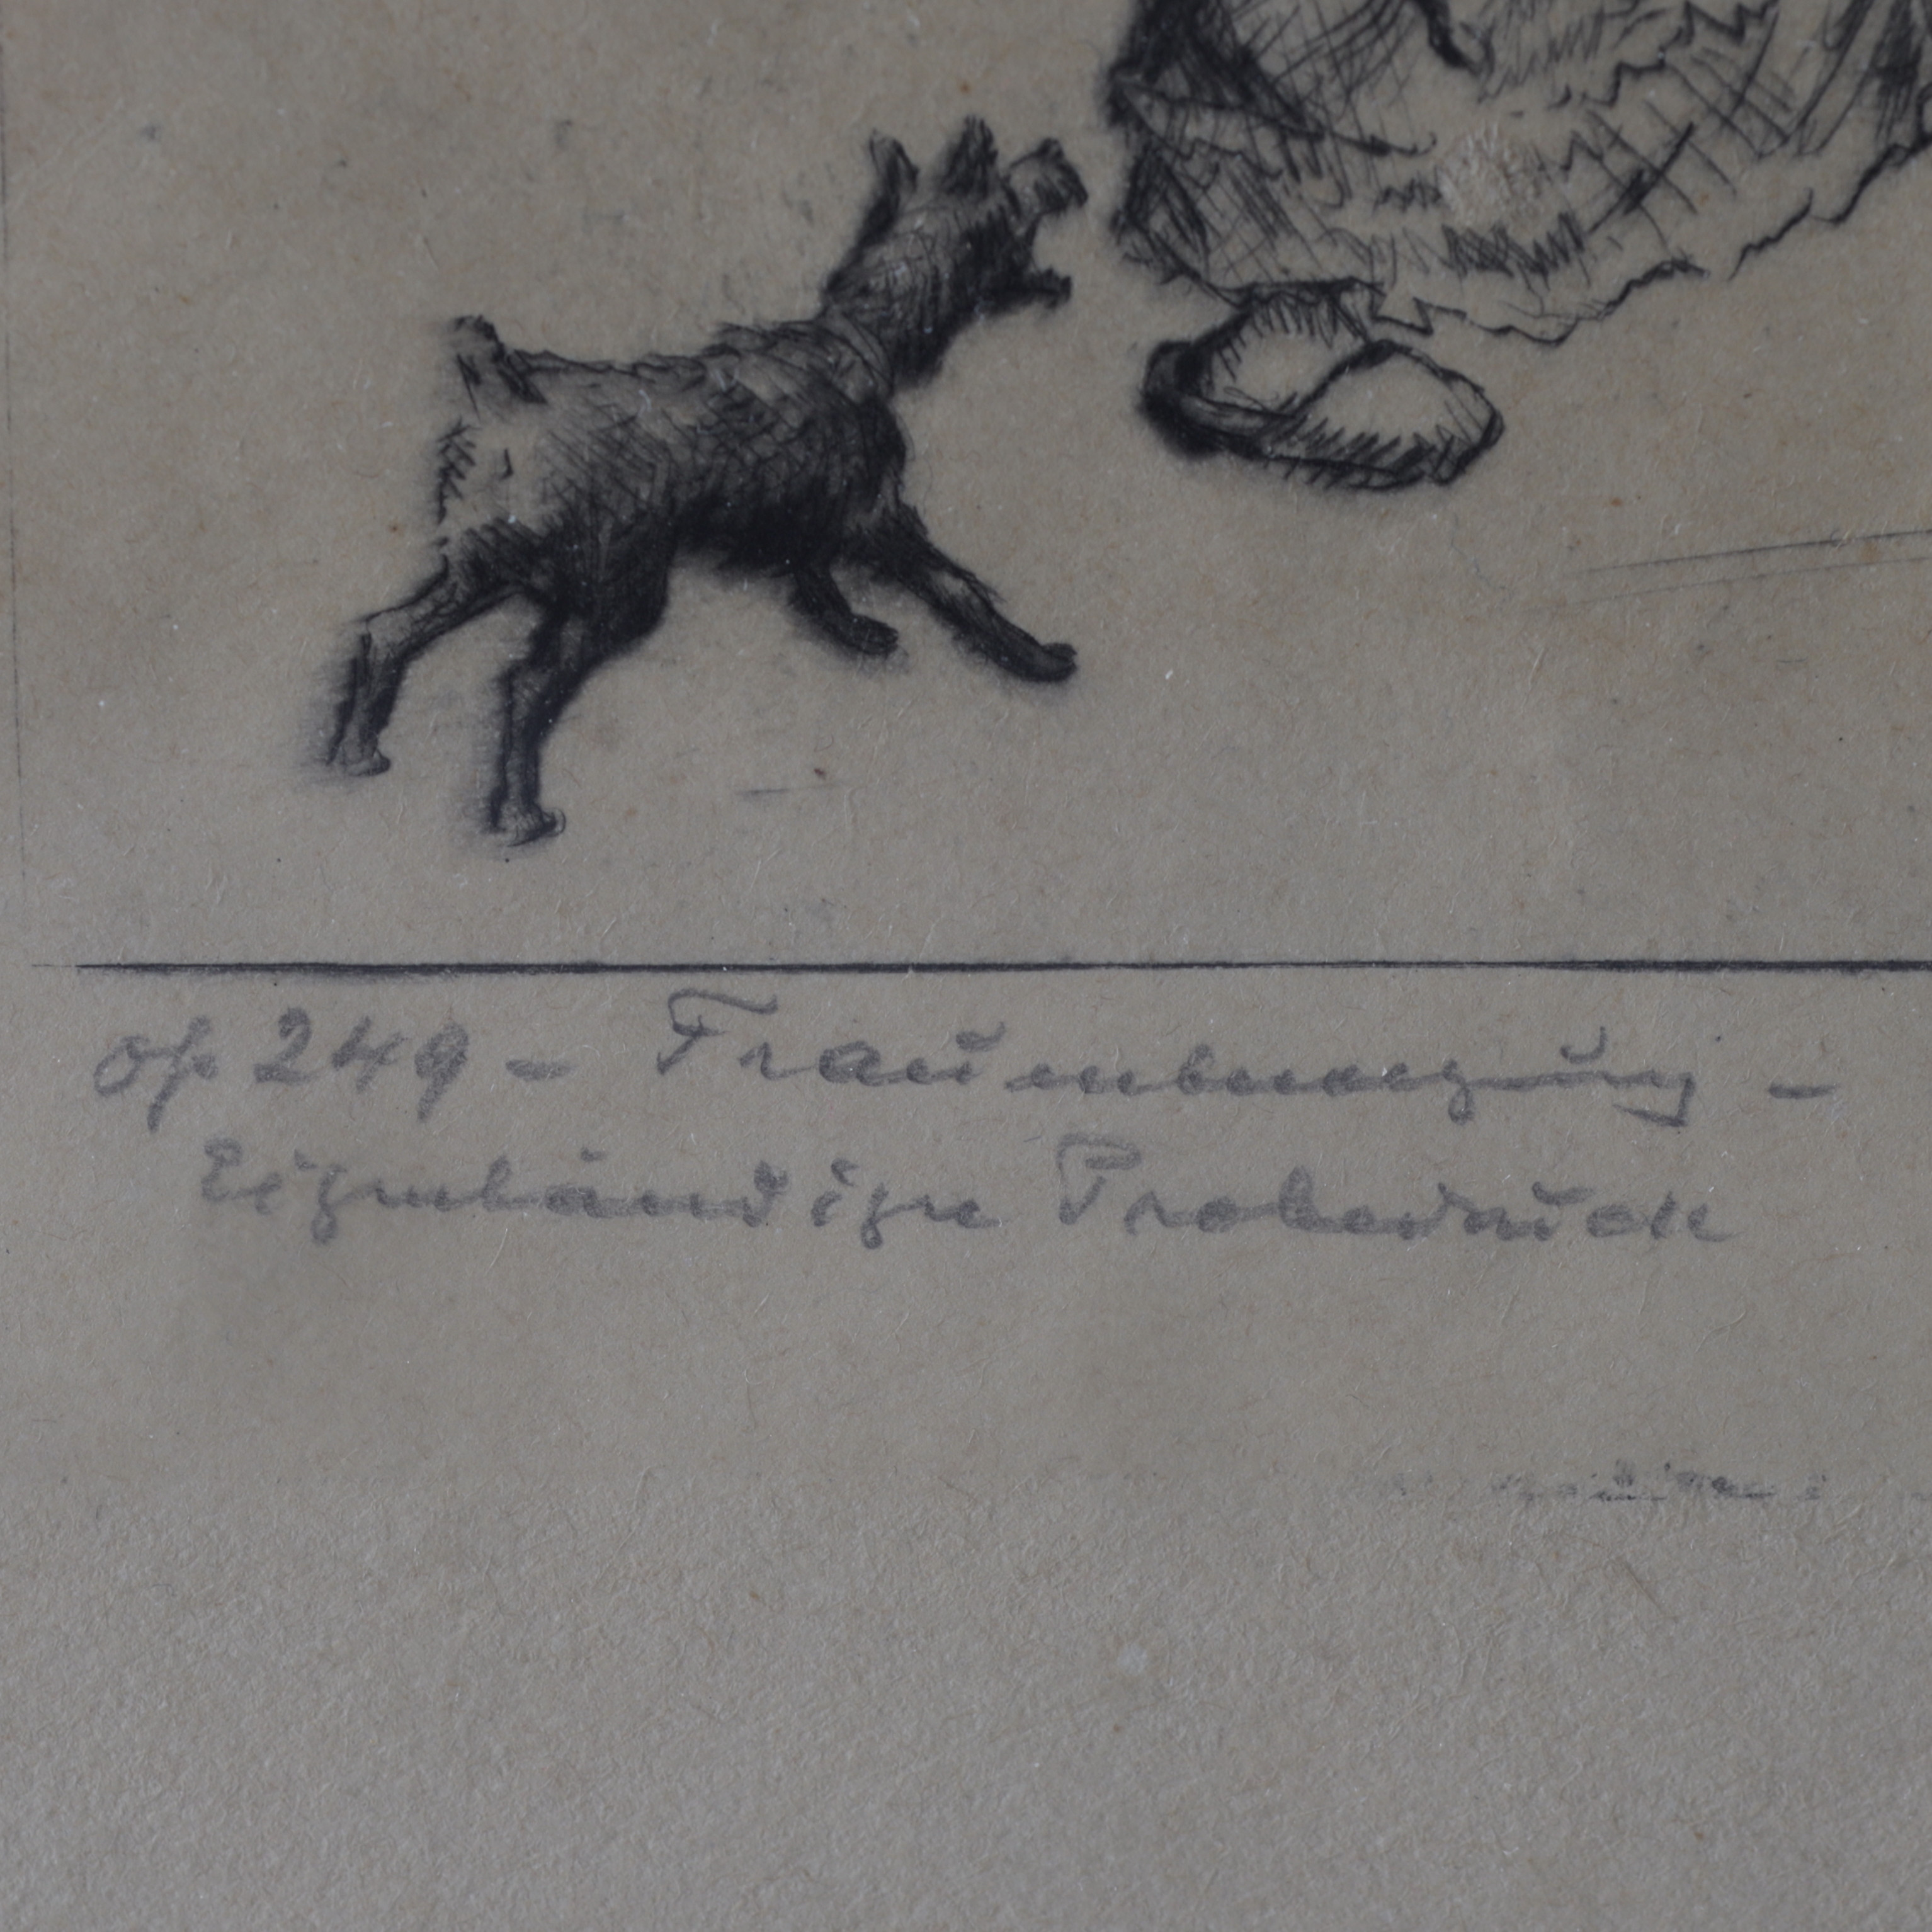 op 249 - Frauenbewegung -
Eigenhändiger Probedruck